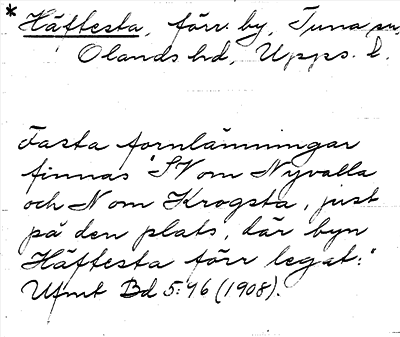 * Häftesta, förr by, Tuna sn,
Olands hd, Upps. l.
Fasta fornlämningar
finnas "SV om Nyvalla
och N om Krogsta, just
på den plats, där byn
Häftesta förr legat."
Ufmt Bd 5:46 (1908).